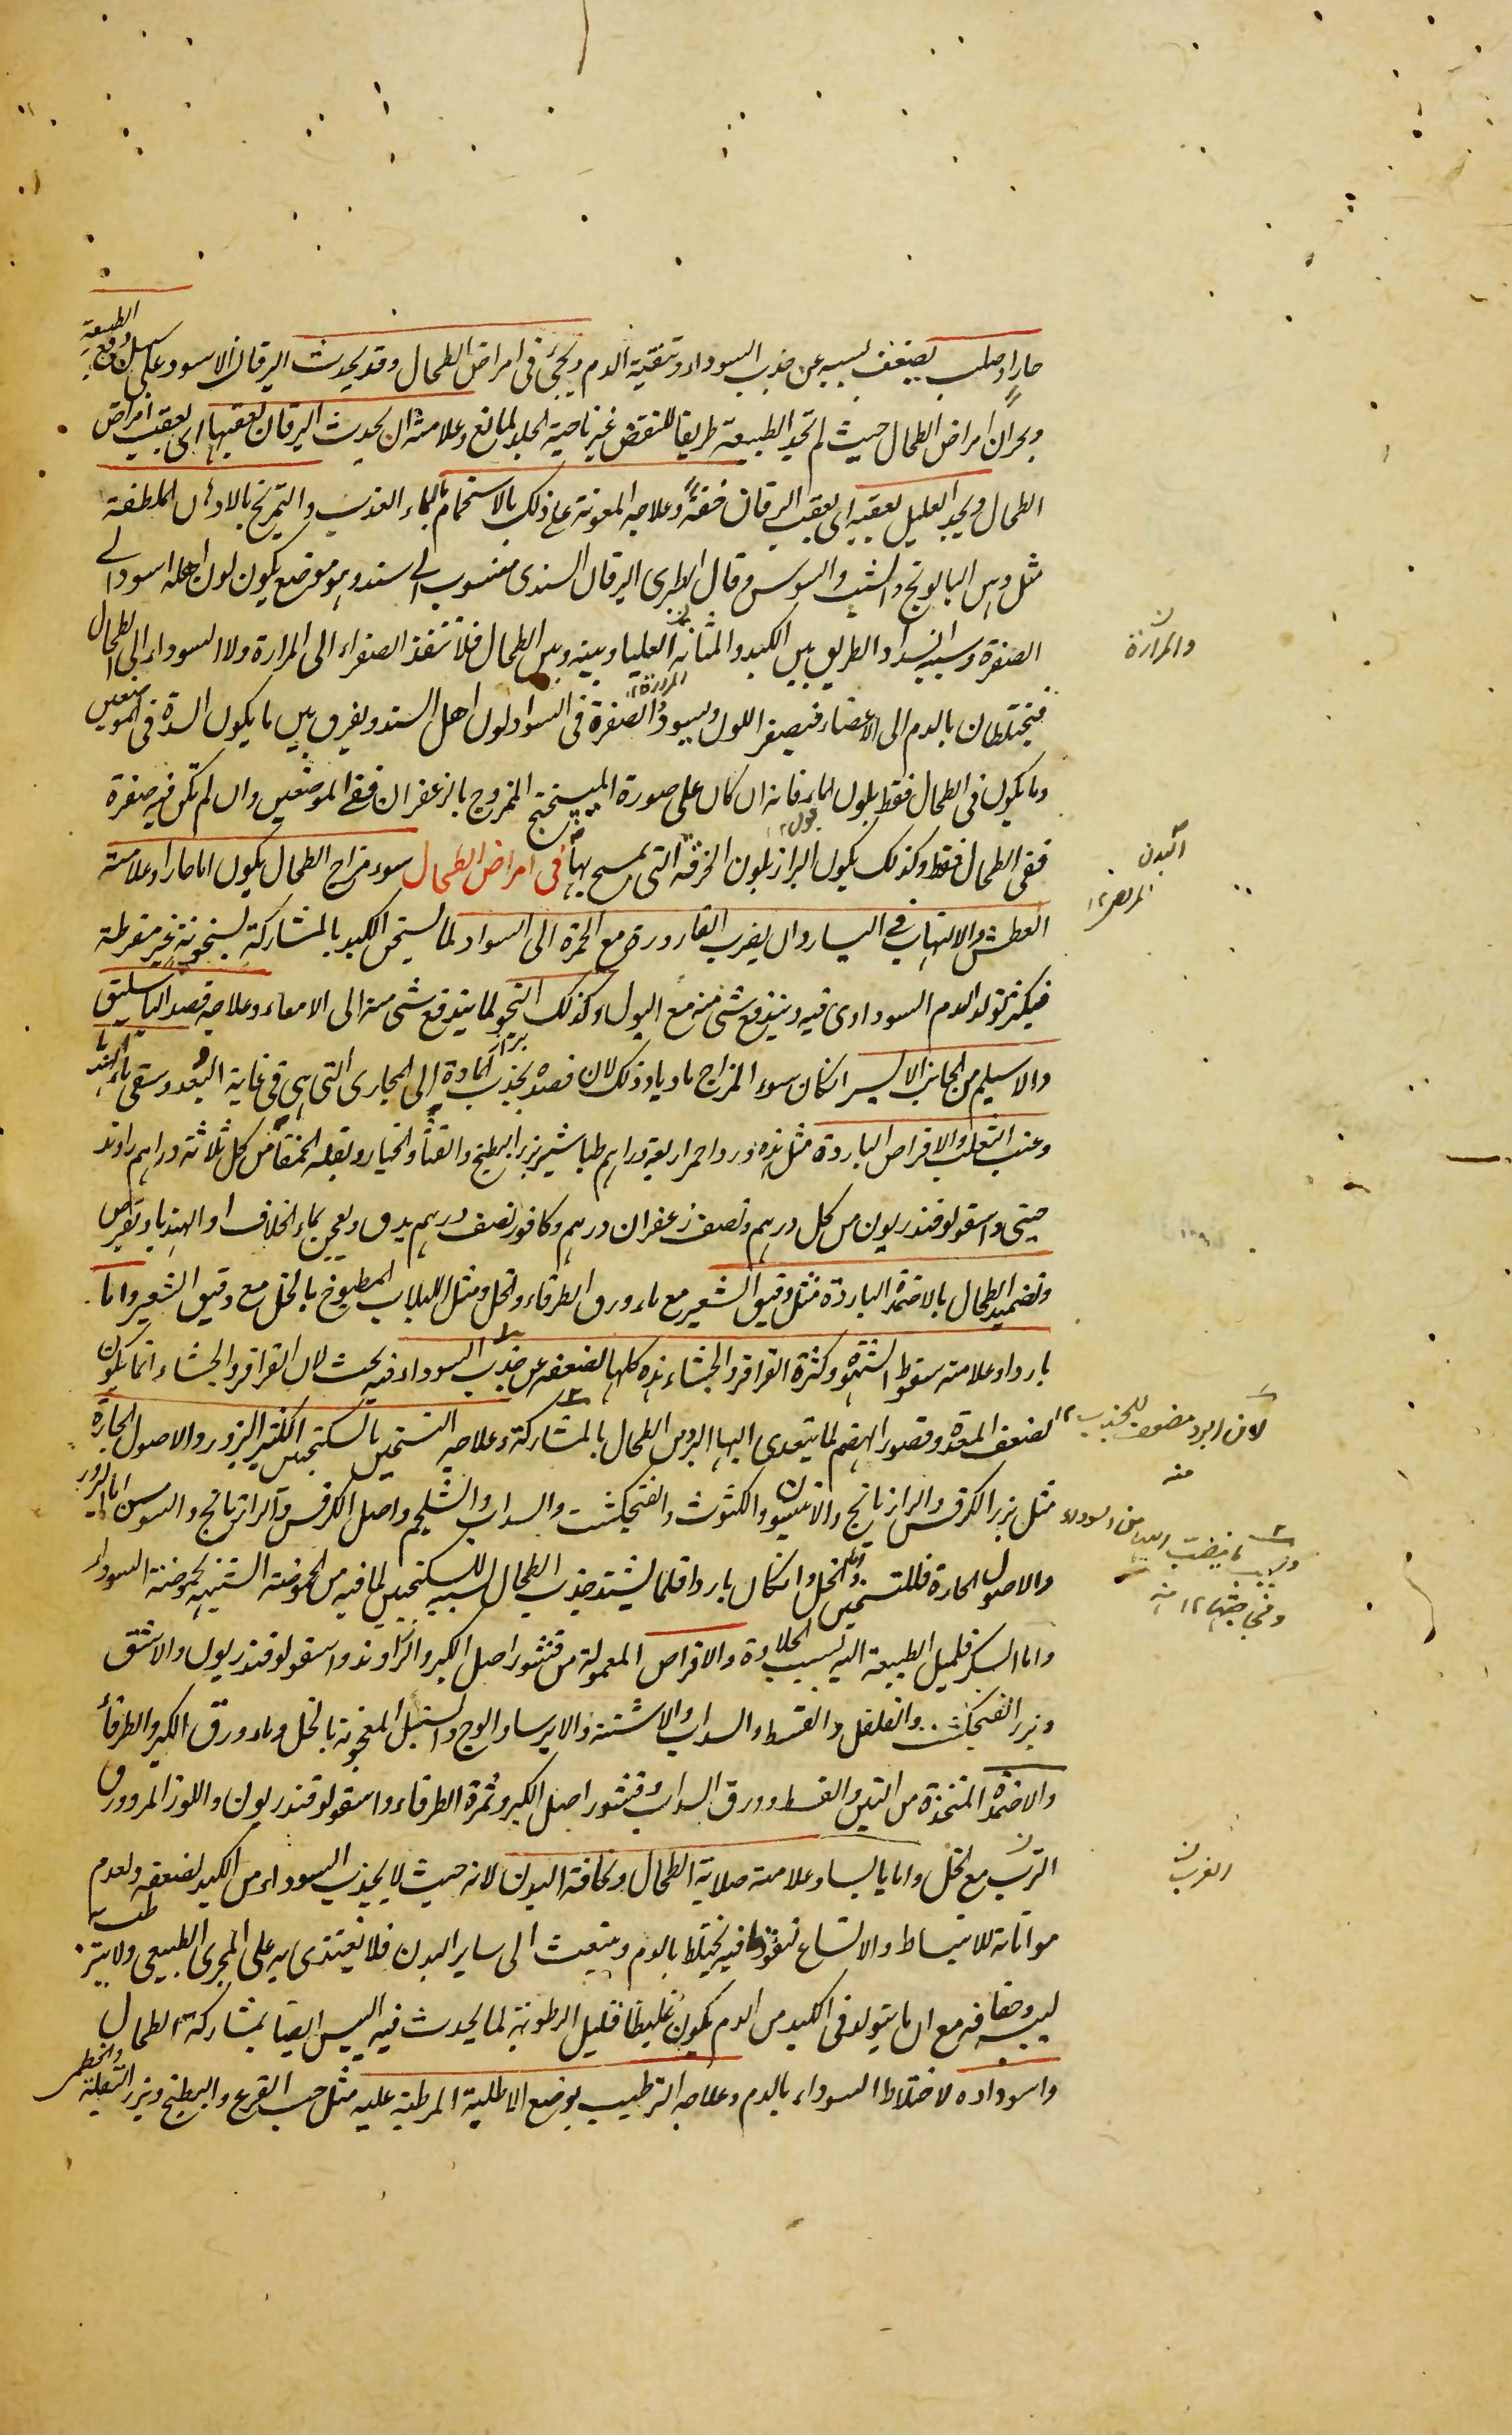 حار او صلب يضعف بسببه عن جذب السوداء وتنقية الدم ويجئ في امراض الطحال وقد يحدث اليرقان الاسود على سبيل دفع الطبيعة
وبحران امراض الطحال حيث لم تجد الطبيعة طريقا للنفض غير ناحية الجلد لمانع وعلامته ان يحدث اليرقان بعقبها اى بعقب امراض
الطحال ويجد العليل بعقبه اى بعقب اليرقان خفة وعلاجه المعونة على ذلك بالاستحمام بالماء العذب والتمريخ بالادهان الملطفة
مثل دهن البابونج والشبت والسوسن وقال الطبرى اليرقان السندى منسوب الى السند وهو موضع يكون لون اهله اسود الى
الصفرة وسببه انسداد الطريق بين الكبد والمثانة العليا وبينه وبين الطحال فلا تنفذ الصفراء الى المرارة ولا السوداء الى الطحال
والمرارة
فيختلطان بالدم الى الاعضاء فيصفر اللون ويسود الصفرة في السواد لون اهل السند ويفرق بين ما يكون السدة في الموضعين
وما يكون في الطحال فقط بلون الماء فانه ان كان على صورة الميبختج الممزوج بالزعفران ففي الموضعين وان لم تكن فيه صفرة
ففي الطحال فقط وكذلك يكون البراز بلون الخرقة التى يمسح بها في امراض الطحال سوء مزاج الطحال يكون اما حارا وعلامته
البدن
العطش والالتهاب في اليسار وان يضرب القارورة مع الحمرة الى السواد لما يسخن الكبد بالمشاركة سخونة غير مفرطة
فيكثر تولد الدم السوداوى فيه ويندفع شئ منه مع البول وكذلك النجو لما يندفع شئ منه الى الامعاء وعلاجه فصد الباسليق
والاسيلم من الجانب الايسر ان كان سوء المزاج ماديا وذلك لان فصده يجذب المادة الى المجارى التى هى في غاية البعد وسقى ماء الهندبا
وعنب الثعلب والاقراص الباردة مثل هذه ورد احمر اربعة دراهم طباشير بزر البطيخ والقثاء والخيار وبقلة الحمقا من كل ثلاثة دراهم راوند
صينى واسقولوقندريون من كل درهم ونصف زعفران درهم وكافور نصف درهم يدق ويعجن بماء الخلاف او الهندبا ويقرص
وتضميد الطحال بالاضمدة الباردة مثل دقيق الشعير مع ماء ورق الطرفاء والخل ومثل اللبلاب المطبوخ بالخل مع دقيق الشعير واما
باردا وعلامته سقوط الشهوة وكثرة القراقر والجشاء هذه كلها لضعفه عن جذب السوداء فيه بحث لان القراقر والجشاء انما تكون
لضعف المعدة وقصور الهضم لما يتعدى اليها البرد من الطحال بالمشاركة وعلاجه التسخين بالسكنجبين الكثير البزور والاصول الحارة
لان البرد مضعف للجذب ١٢ منه
مثل بزر الكرفس والرازيانج والانيسون والكشوث والفنجنكشت والسداب والشلجم واصل الكرفس والرازيانج والسوسن اما البزور
والاصول الحارة فللتسخين واما الخل وان كان باردا فلما يشتد جذب الطحال للسكنجبين لما فيه من الحموضة الشبيهة بحموضة السوداء
واما السكر فلميل الطبيعة اليه بسبب الحلاوة والاقراص المعمولة من قشور اصل الكبر والزراوند واسقولوقندريون والاشق
وبزر الفنجنكشت والفلفل والقسط والسداب والاشنه والايرسا والوج والسنبل المعجونة بالخل وماء ورق الكبر والطرفا
والاضمدة المتخذة من التين والقسط وورق السداب وقشور اصل الكبر وثمرة الطرفاء واسقولوقندريون واللوز المر وورق
الغرب مع الخل واما يابسا وعلامته صلابة الطحال ونحافة البدن لانه حيث لا يجذب السوداء من الكبد لضعفه ولعدم
الغرب
مواتاته للانبساط والاتساع لنفوذها فيه يختلط بالدم وينبعث الى ساير البدن فلا يغتذى به على المجرى الطبيعى
ليبسه وجفافه مع ان ما يتولد في الكبد من الدم يكون غليظا قليل الرطوبة لما يحدث فيه اليبس ايضا بمشاركة الطحال
واسوداده لاختلاط السوداء بالدم وعلاجه الترطيب بوضع الاطلية المرطبة عليه مثل حب القرع والبطيخ وبزر البقلة والخطمى